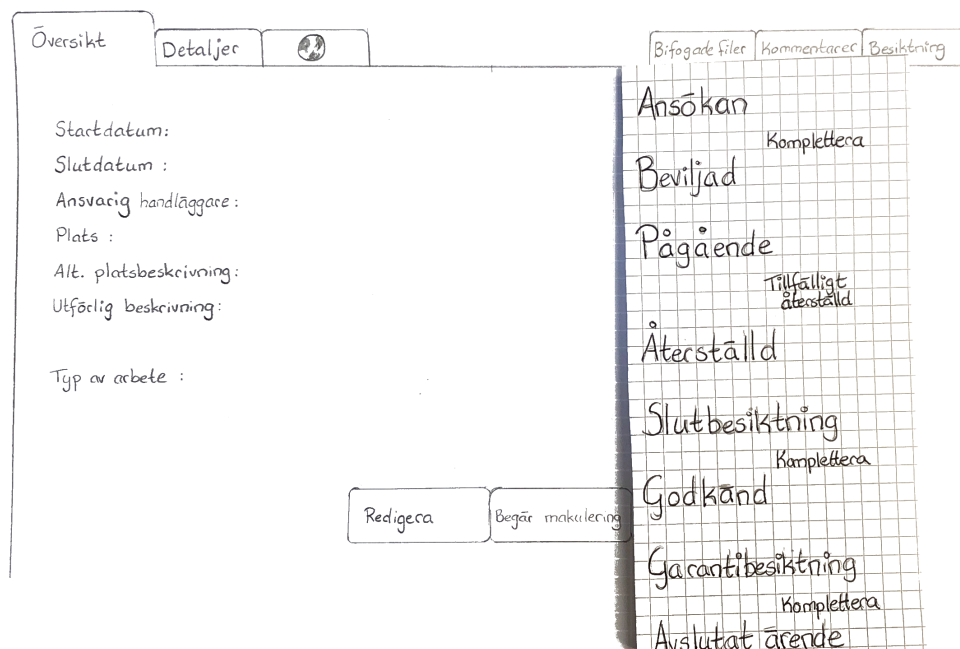 Översikt
Detaljer
Bifogade filer
Kommentarer
Besiktning
Startdatum:
Slutdatum :
Ansvarig handläggare :
Plats :
Alt. platsbeskrivning:
Utförlig beskrivning:
Typ av arbete :
Redigera
Begär makulering
Ansökan
Komplettera
Beviljad
Pågående
Tillfälligt
återställd
Återställd
Slutbesiktning
Komplettera
Godkänd
Garantibesiktning
Komplettera
Avslutat ärende